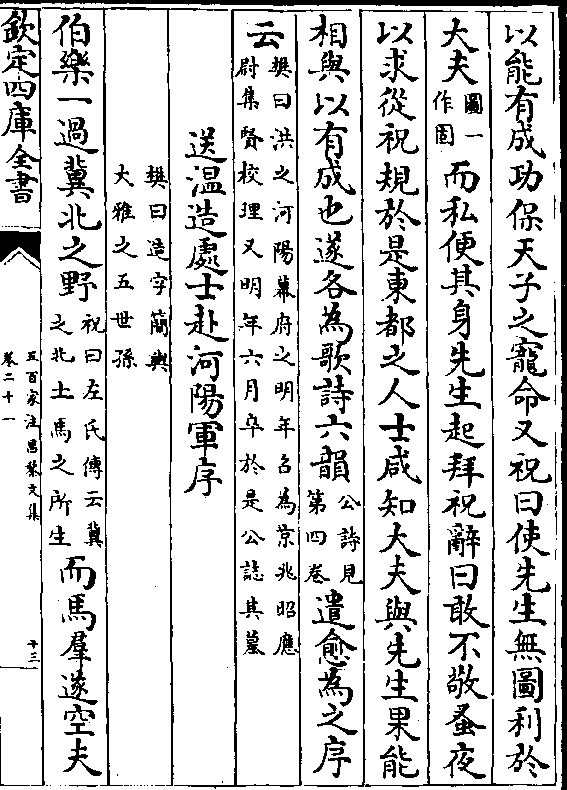 以能有成功保天子之寵命又祝曰使先生無圖利於
大夫圖一作固而私便其身先生起拜祝辭曰敢不敬蚤夜
以求從祝規於是東都之人士咸知大夫與先生果能
相與以有成也遂各為歌詩六韻公詩見第四卷遣愈為之序
云樊曰洪之河陽幕府之明年召為京兆昭應尉集賢校理又明年六月卒於是公誌其墓
送温造處士赴河陽軍序
樊曰造字簡輿大雅之五世孫
伯樂一過冀北之野祝曰左氏傳云冀之北土馬之所生而馬羣遂空夫
欽定四庫全書
五百家注昌黎文集
卷二十一
十三